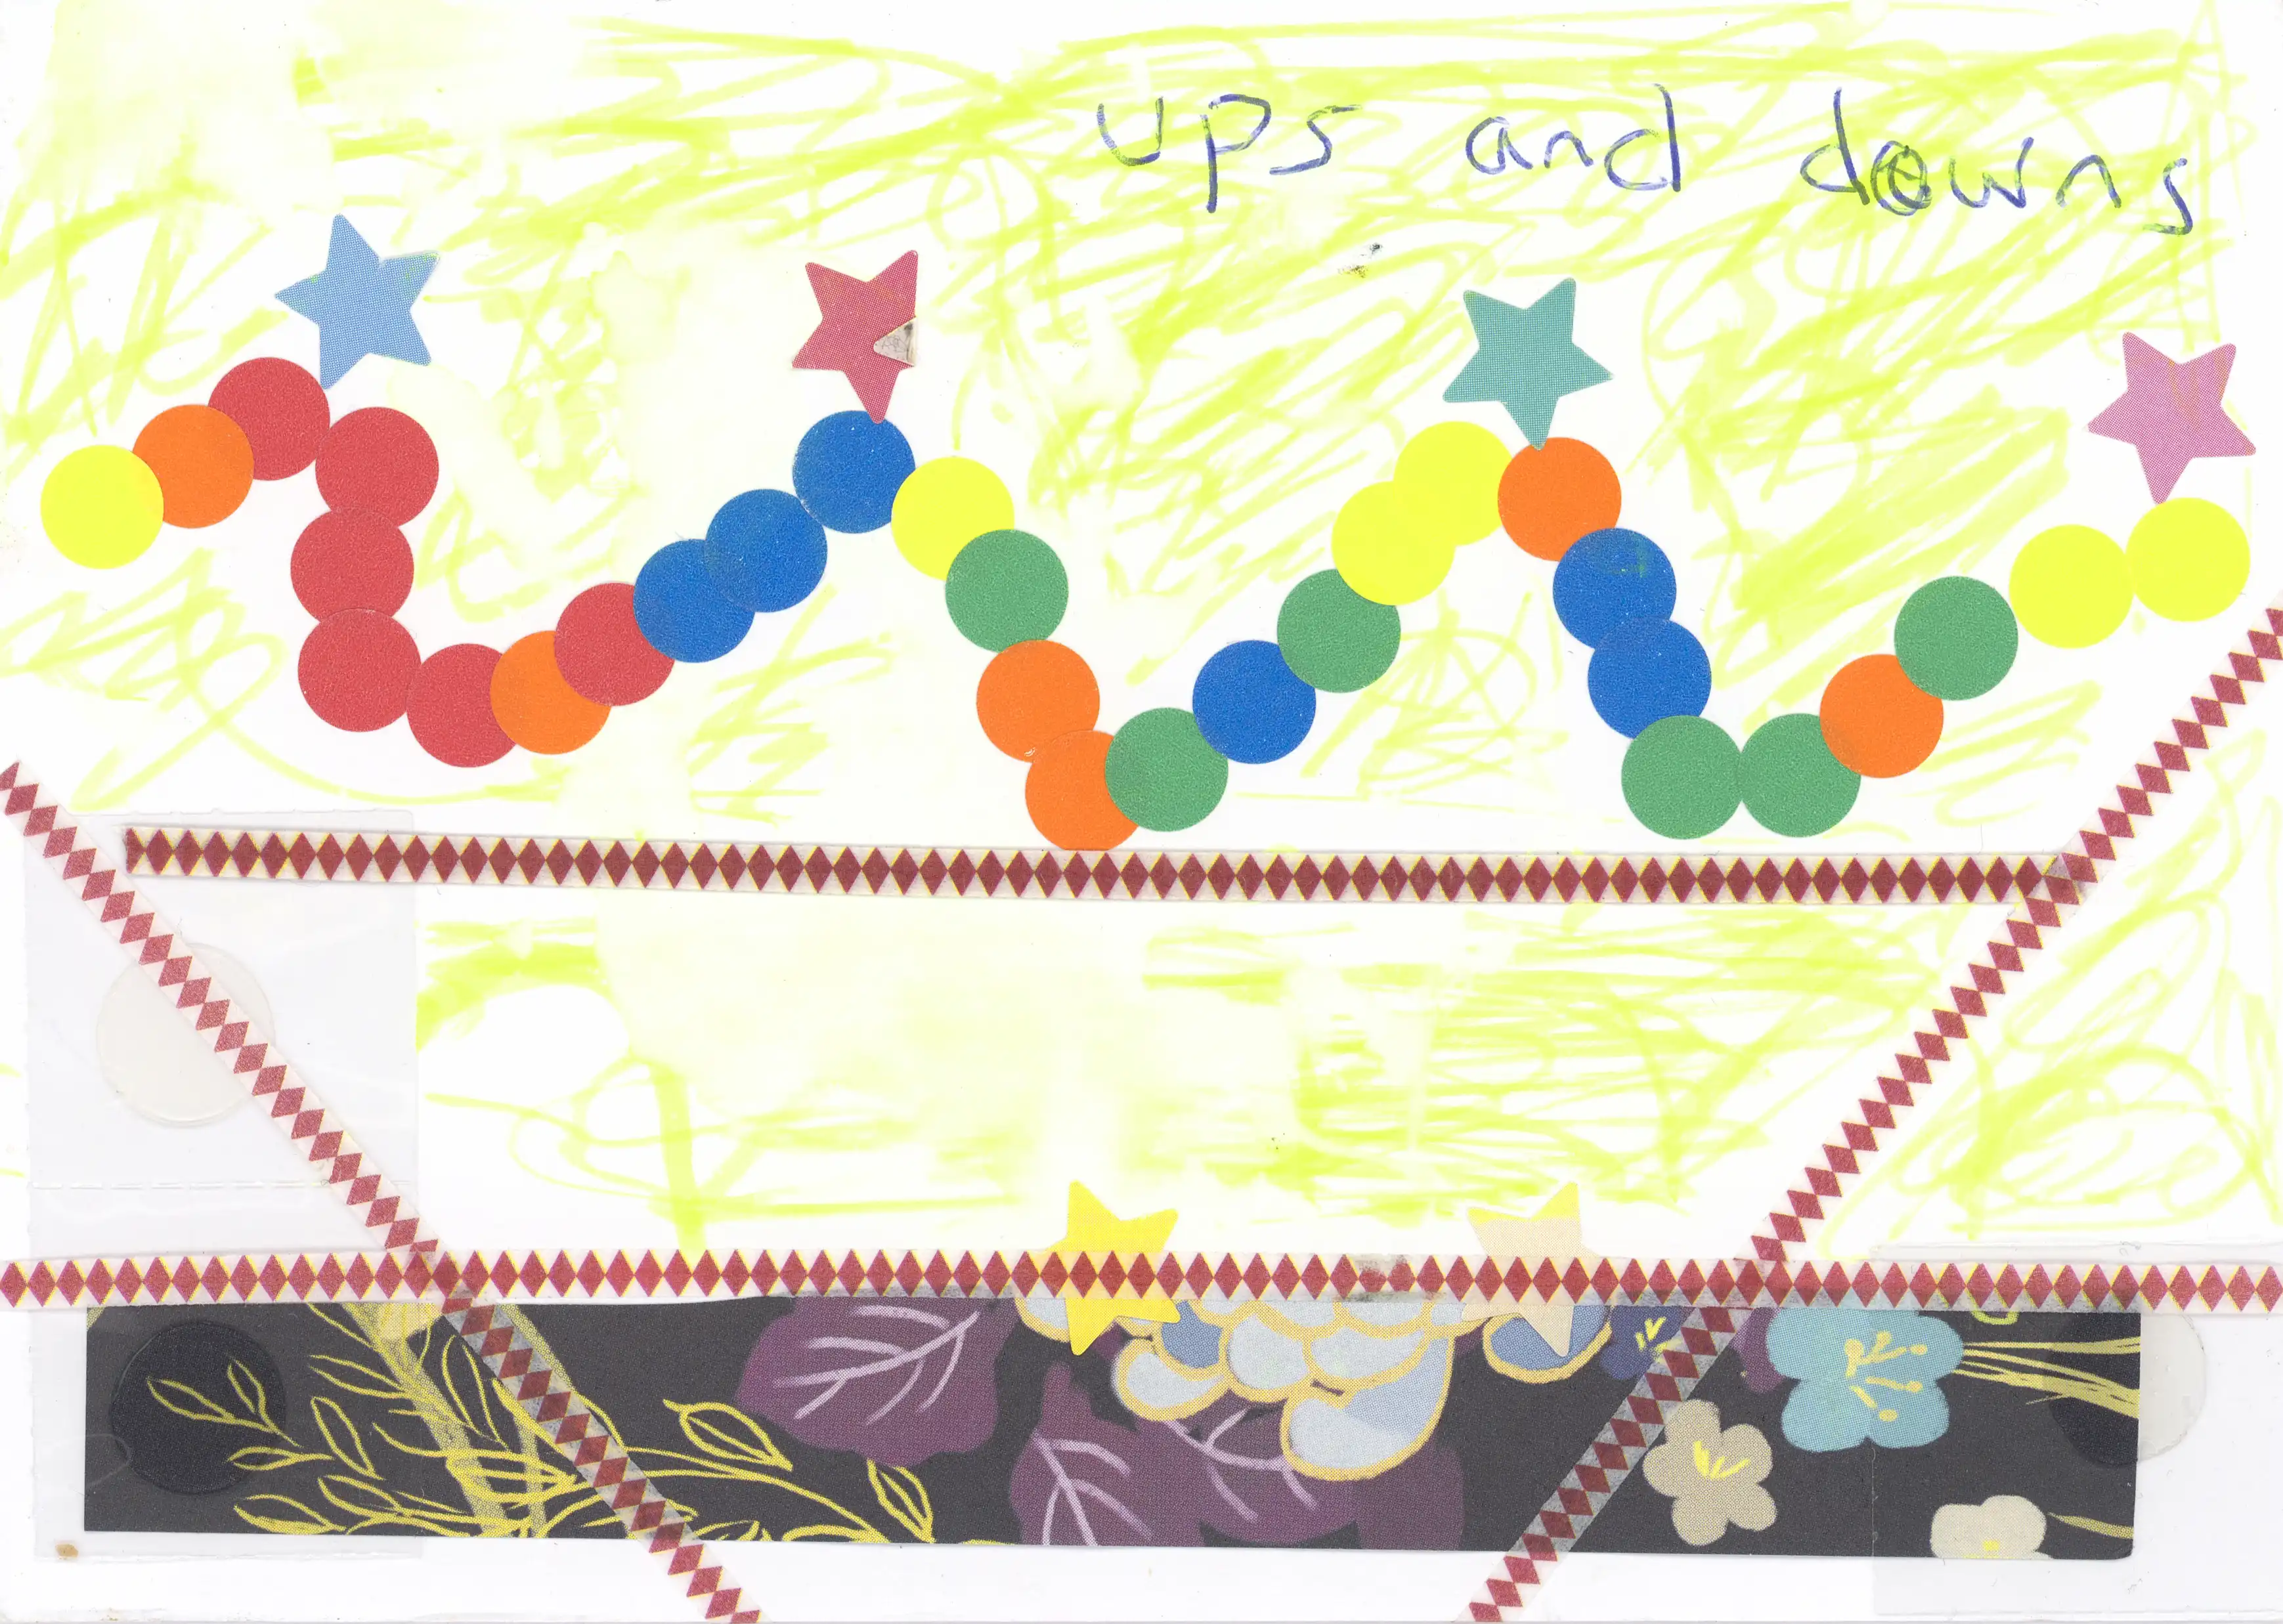 ups and downs